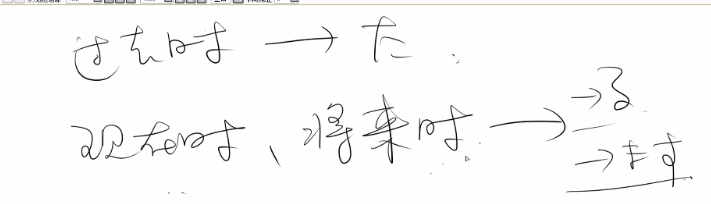 过去时 → た
现在时、将来时 → →る
→ます